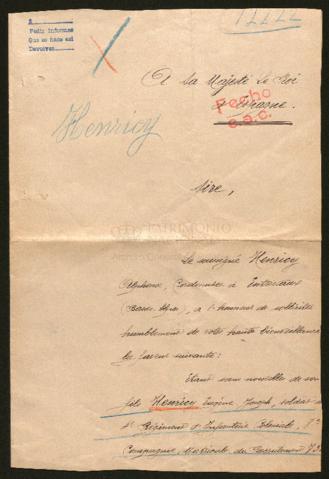 A
Pedir informes
Que se hace así
Devolver
A Sa Majesté Le Roi
d'Espagne.
Fecho
e.a.c.
Henricy
Sire,
PATRIMONIO
Le soussigné Henricy
Alphonse, Cordonnier à Entrevaux
(Basses-Alpes), a l'honneur de solliciter
humblement de votre haute bienveillance
la faveur suivante:
Etant sans nouvelle de son
fils Henricy Eugène Joseph, soldat au
Régiment d'Infanterie Coloniale,
Compagnie, Matricule du Recrutement